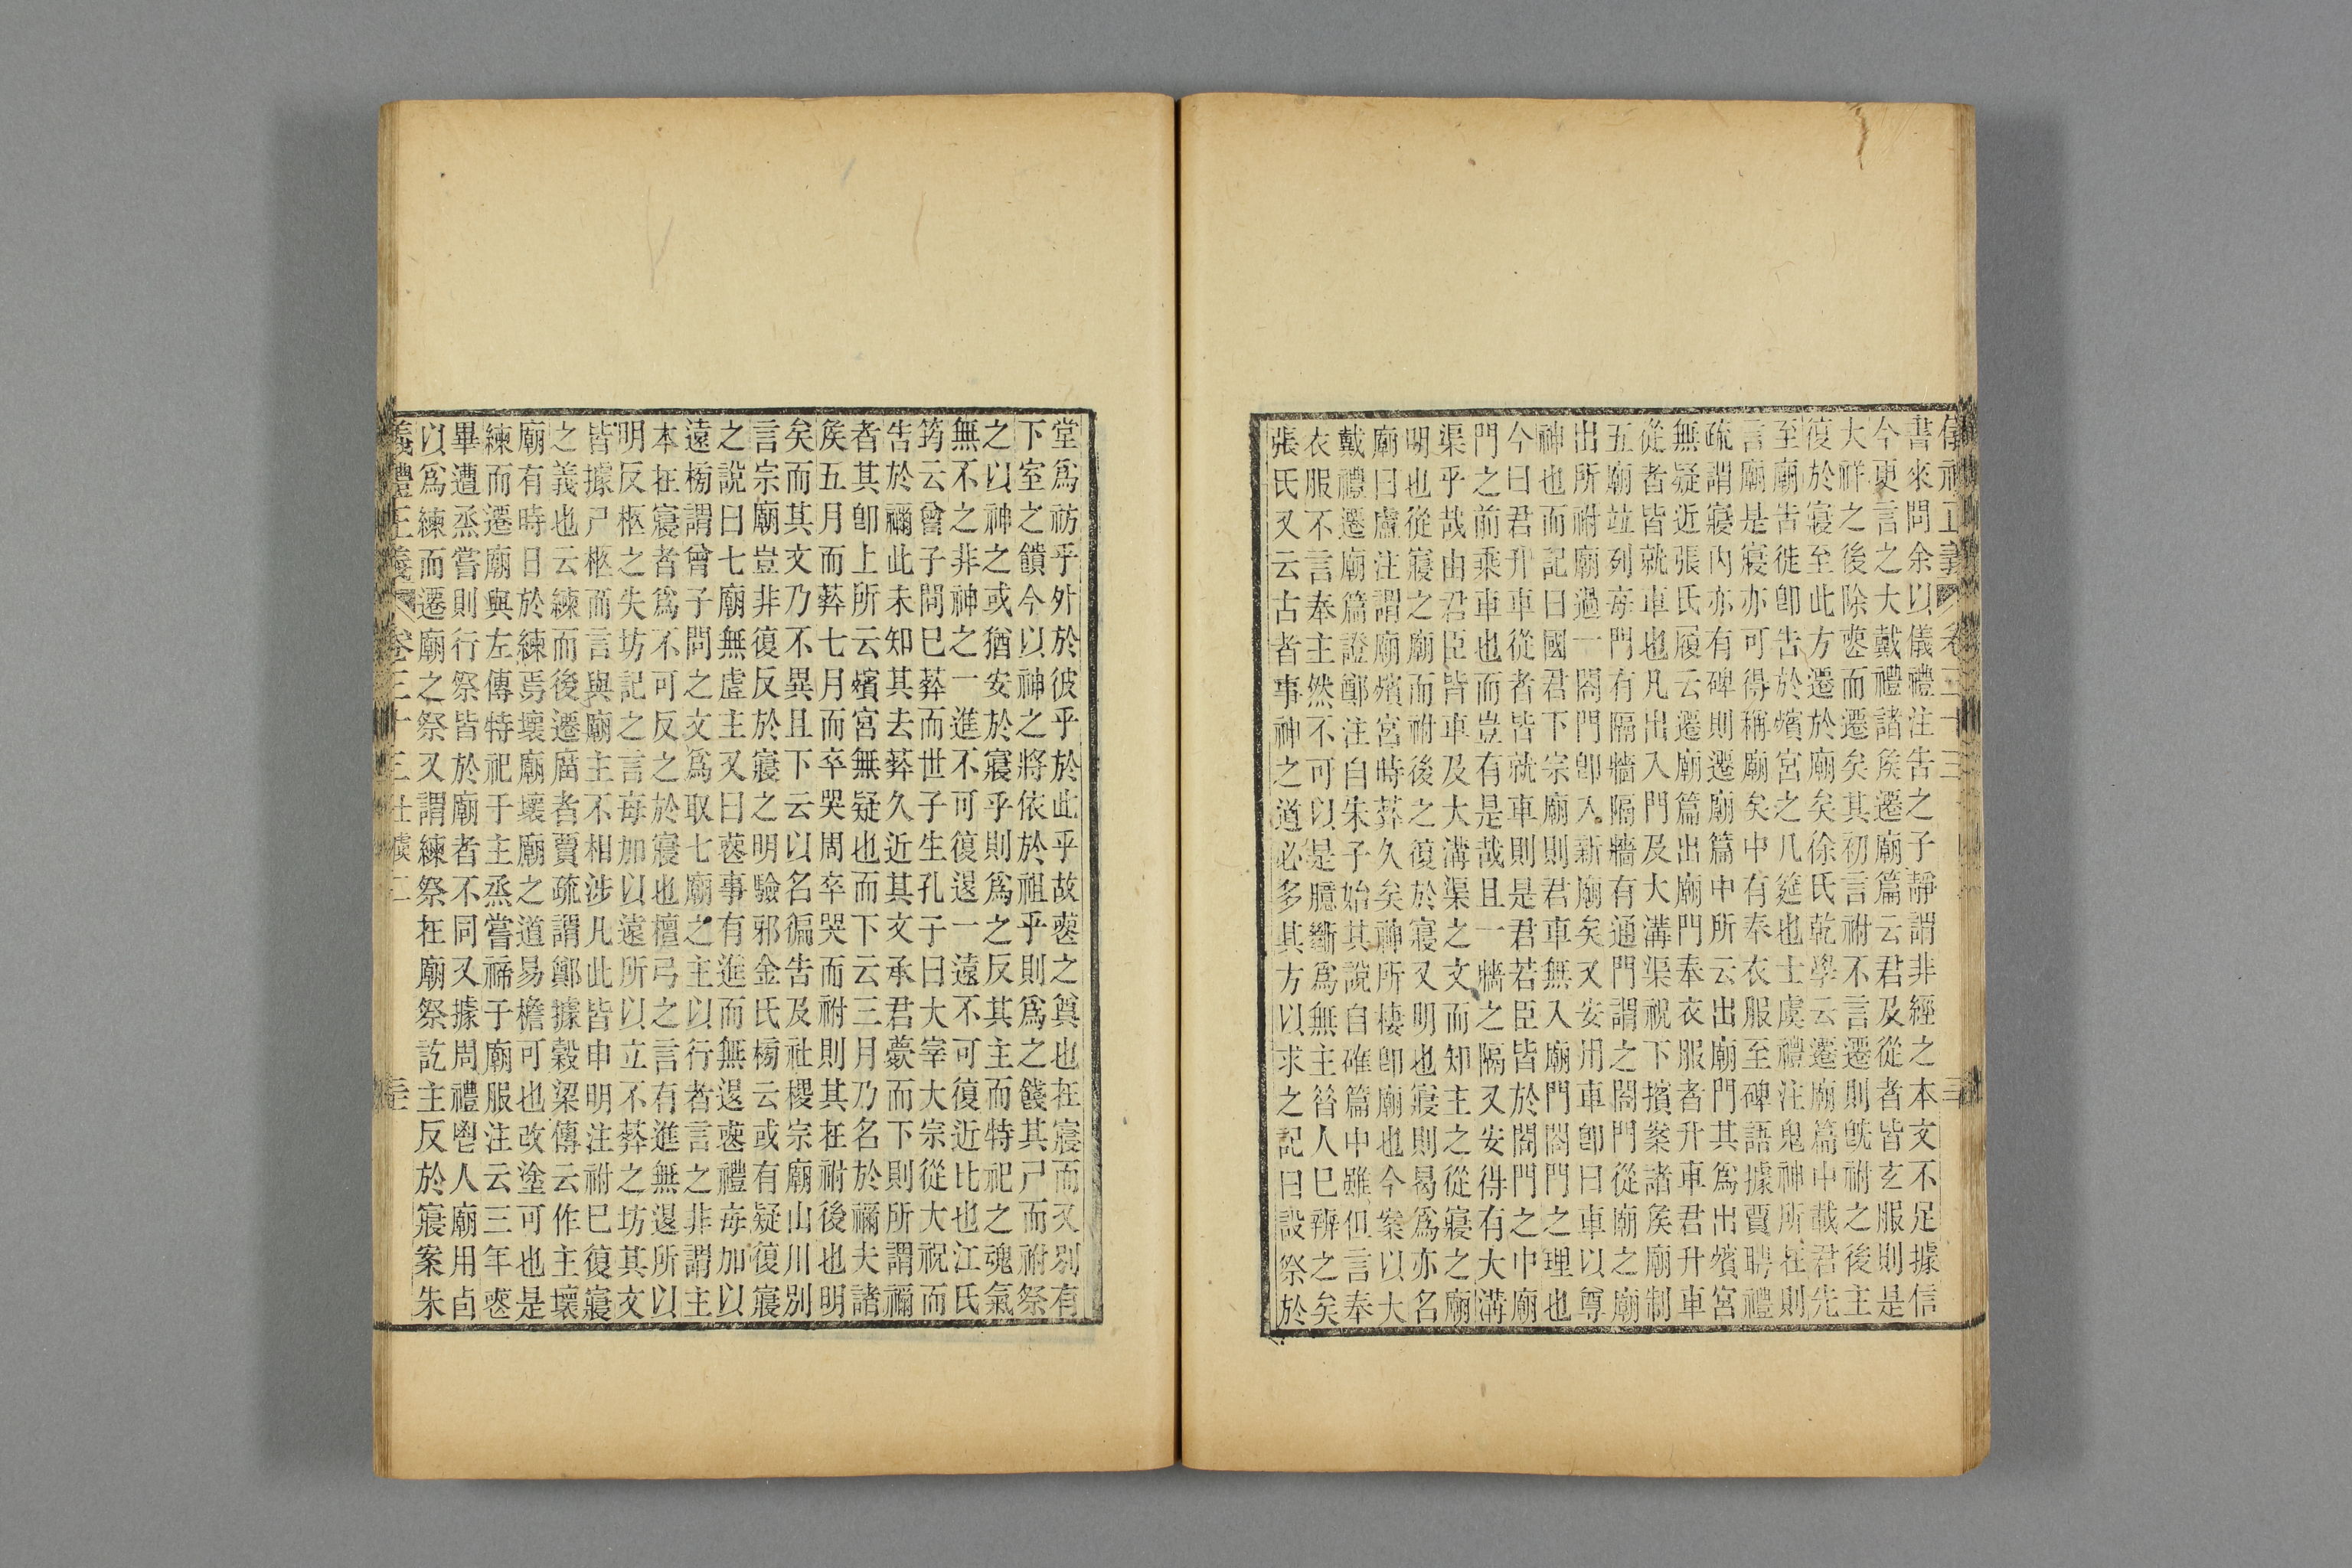 書來問余以儀禮注告之子靜謂非經之本文不足據信
今更言之大戴禮諸矦遷廟篇云君及從者皆玄服則是
大祥之後除䘮而遷矣其初言祔不言遷則旣祔之後主
復於寢至此方遷於廟矣徐氏乾學云遷廟篇中載君先
至廟告徙卽告於殯宮之几筵也士虞禮注鬼神所在則
言廟是寢亦可得稱廟矣中有奉衣服至碑語據賈聘禮
疏謂寢內亦有碑則遷廟篇中所云出廟門其爲出殯宮
無疑近張氏履云遷廟篇出廟門奉衣服者升車君升車
從者皆就車也凡出入門及大溝渠祝下擯案諸矦廟制
五廟竝列每門有隔牆隔牆有通門謂之閤門從廟之廟
出所祔廟過一閤門卽入新廟矣又安用車卽曰車以尊
神也而記曰國君下宗廟則君車無入廟門閤門之理也
今曰君升車從者皆就車則是君若臣皆於閤門之中廟
門之前乘車也而豈有是哉且一牆之隔又安得有大溝
渠乎哉由君臣皆車及大溝渠之文而知主之從寢之廟
明也從寢之廟而祔後之復於寢又明也寢則曷爲亦名
廟曰盧注謂廟殯宮時葬久矣神所棲卽廟也今案以大
戴禮遷廟篇證鄭注自朱子始其說自確篇中雖但言奉
衣服不言奉主然不可以是臆斷爲無主昝人巳辨之矣
張氏又云古者事神之道必多其方以求之記曰設祭於
堂爲祊乎外於彼乎於此乎故䘮之奠也在寢而又別有
下室之饋今以神之將依於祖乎則爲之餞其尸而祔祭
之以神之或猶安於寢乎則爲之反其主而特祀之魂氣
無不之非神之一進不可復退一遠不可復近比也江氏
筠云曾子問巳葬而世子生孔子曰大宰大宗從大祝而
告於禰此未知其去葬久近其文承君薨而下則所謂禰
者其卽上所云殯宮無疑也而下云三月乃名於禰夫諸
矦五月而葬七月而卒哭周卒哭而祔則其在祔後也明
矣而其文乃不異且下云以名徧告及社稷宗廟山川別
言宗廟豈非復反於寢之明驗邪金氏榜云或有疑復寢
之說曰七廟無虛主又曰䘮事有進而無退䘮禮每加以
遠榜謂曾子問之文爲取七廟之主以行者言之非謂主
本在寢者爲不可反之於寢也檀弓之言有進無退所以
明反柩之失坊記之言每加以遠所以立不葬之坊其文
皆據尸柩而言與廟主不相涉凡此皆申明注祔巳復寢
之義也云練而後遷廟者賈疏謂鄭據穀梁傳云作主壞
廟有時日於練焉壞廟壞廟之道易檐可也改塗可也是
練而遷廟與左傳特祀于主烝嘗禘于廟服注云三年䘮
畢遭烝嘗則行祭皆於廟者不同又據周禮鬯人廟用卣
以爲練而遷廟之祭又謂練祭在廟祭訖主反於寢案朱